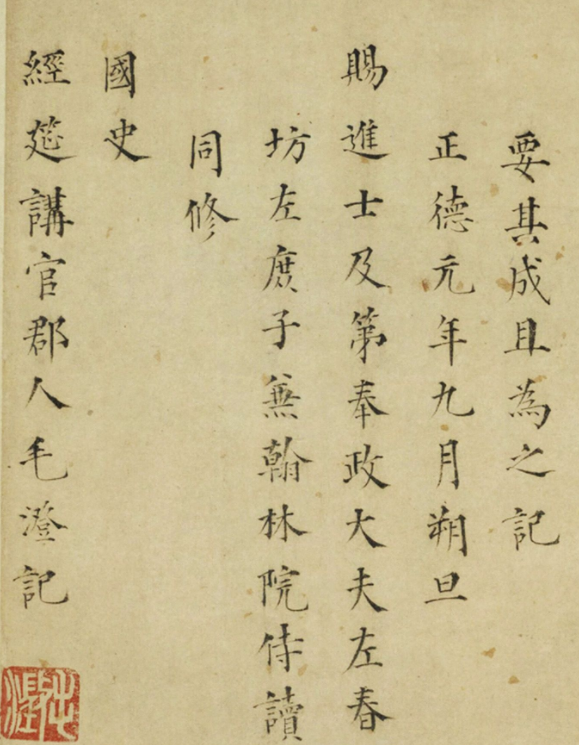 要其成且為之記
正德元年九月朔旦
賜進士及第奉政大夫左春
坊左庶子兼翰林院侍讀
同修
國史
經筵講官郡人毛澄記